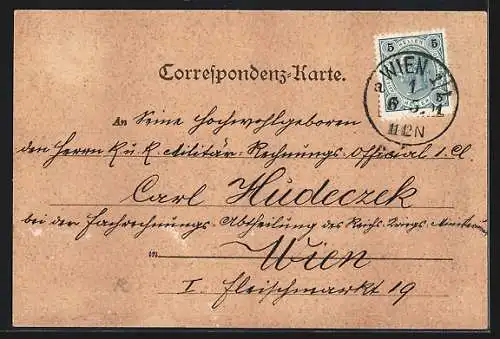 5 HELLER 5
WIEN 1/1
1
a
6 5
11-12N
Correspondenz-Karte.
An Seine Hochwohlgeboren
den Herrn K. u. K. Militär-Rechnungs-Official I. Cl.
Carl Hudeczek
bei der Fachrechnungs-Abtheilung des Reichs-Kriegs-Ministeriums
in Wien
I. Fleischmarkt 19